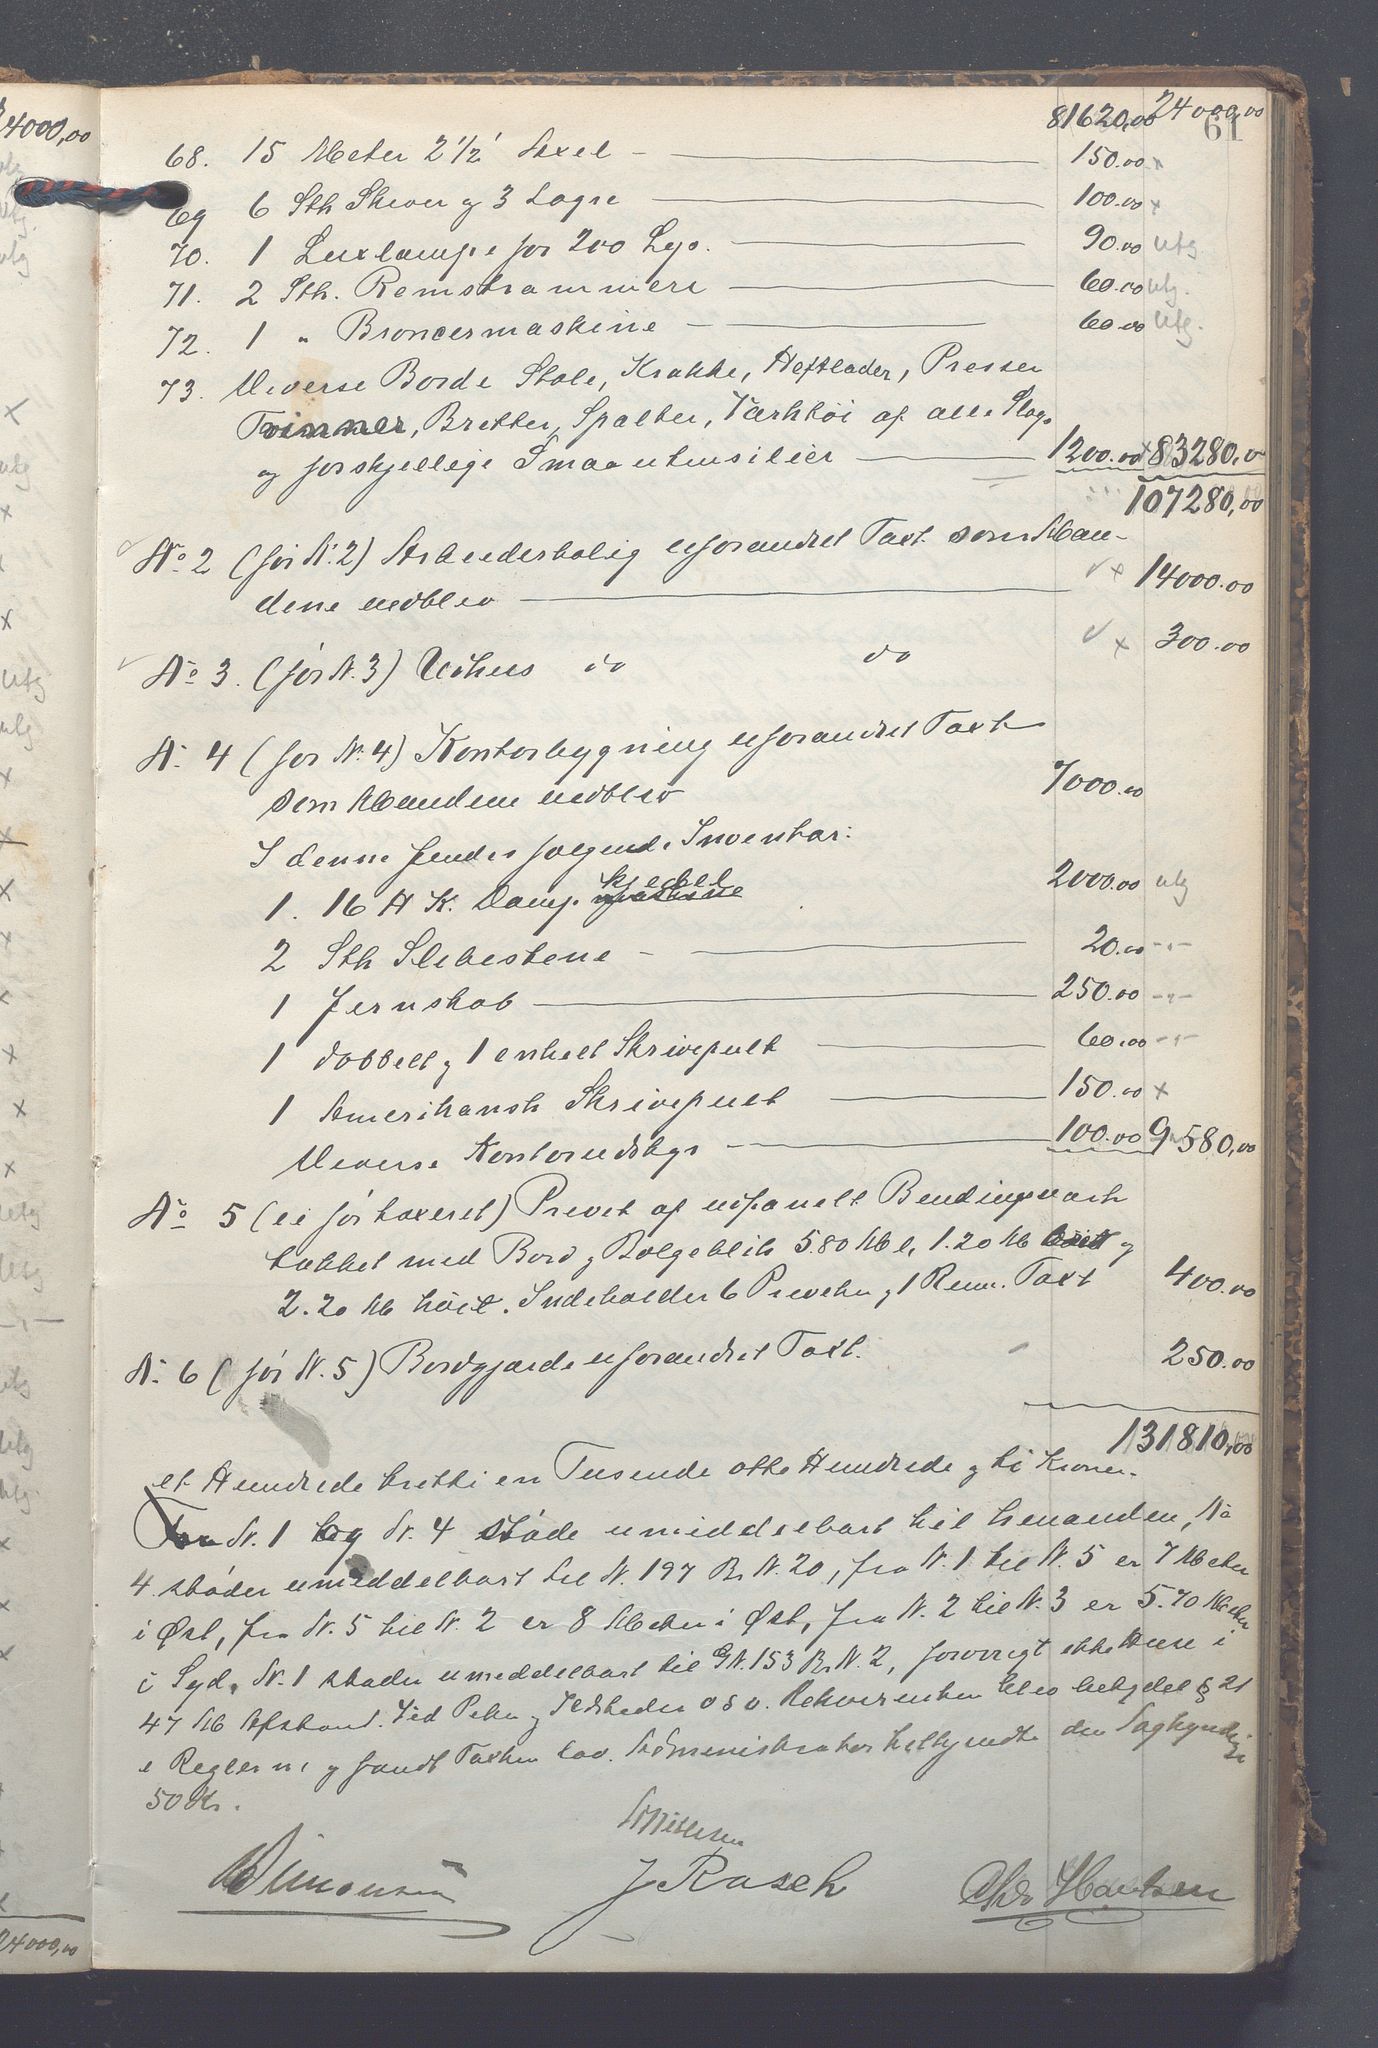 81620,00 24000,00
61
68. 15 Meter 2 1/2" Axel — 150.00 x
69 6 Stk Skiver og 3 Lagre — 100.00 x
70. 1 Luxlampe for 200 Lys. — 90.00 utg
71. 2 Stk. Remstrammere — 60.00 utg.
72. 1 " Broncermaskine — 60.00 utg.
73. Diverse Borde Stole, Krakke, Heftlader, Presser
Tvinner, Bretter, Spalter, Værktøi af alle Slags
og forskjellige Smaautensilier — 1200.00 x 83280,00
107280,00
No 2 (før N. 2) Arbeiderbolig uforandret Taxt som Man-
dene nedblev — x 14000.00
No 3. (før N. 3) Udhus do do x 300.00
N. 4 (før N. 4) Kontorbygning uforandret Taxt
som Mandene nedblev 7000.00
I denne findes følgende Inventar:
1. 16 H K. Damp kjedel 2000.00 utg
2 Stk Slibestene — 20.00 -"-
1 Jernskab — 250.00 -"-
1 dobbelt og 1 enkelt Skrivepult — 60.00 -"-
1 Amerikansk Skrivepult — 150.00 x
Diverse Kontorudstyr — 100.00 9580,00
No 5 (ei før taxeret) Privet af udpanelt Bindingsværk
tækket med Bord og Bølgeblik 5.80 M l, 1.20 M og
2.20 M høit. Indeholder 6 Priveter og 1 Renn. Taxt 400.00
N. 6 (før N. 5) Bordgjærde uforandret Taxt. 250.00
131810,00
et Hundrede tretti en Tusende otte Hundrede og ti Kroner.
N. 1 og N. 4 støde umiddelbart til hinanden, No
4 støder umiddelbart til N. 197 Br N. 20, fra N. 1 til N. 5 er 7 Meter
i Øst, fra N. 5 til N. 2 er 8 Meter i Øst, fra N. 2 til N. 3 er 5.70 Meter
i Syd. N. 1 støder umiddelbart til G N. 153 Br N. 2, forøvrigt ikke Huse i
47 M Afstand. Ved Piber og Ildsteder o s v. Rekvirenten blev betydet § 21
i Reglerne og fandt Taxten lav. Administrator tilkjendte den Sagkyndige
50 Kr.
J Rasch
4000,00
24000,00